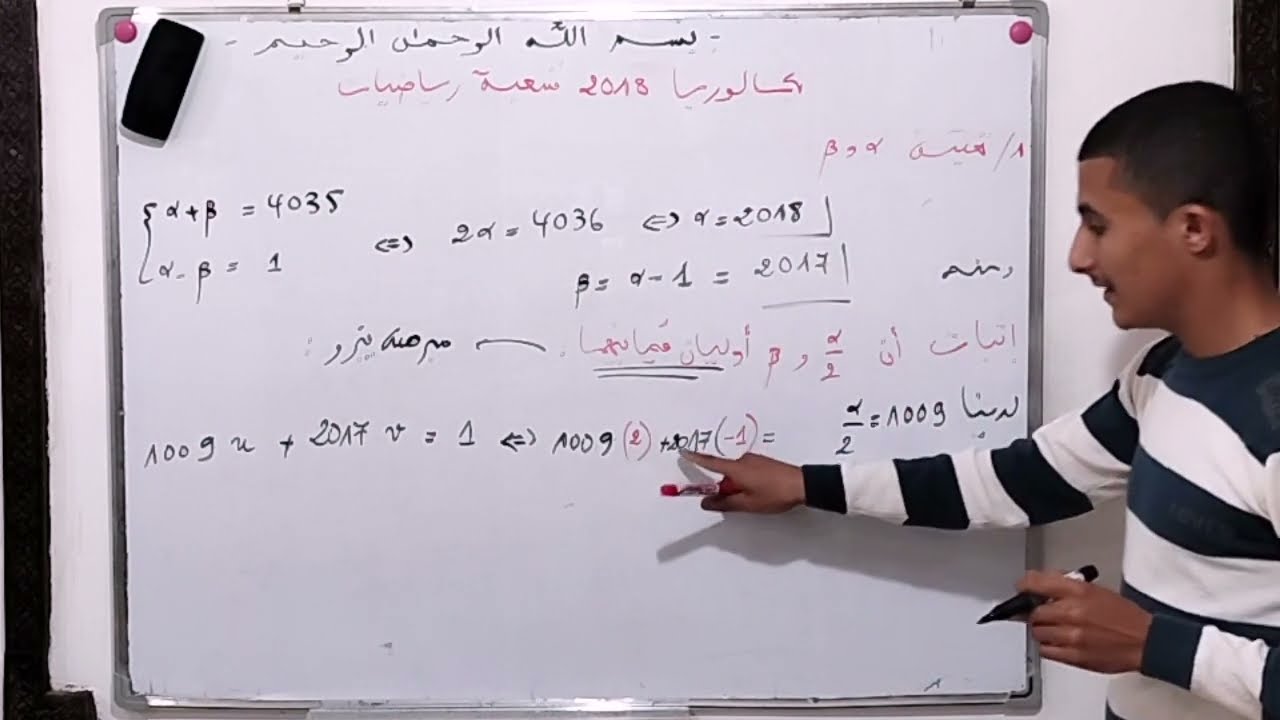 - بسم الله الرحمان الرحيم -
بكالوريا 2018 شعبة رياضيات
1/ تعيين α و β
{ α + β = 4035
α - β = 1
⇔ 2α = 4036 ⇔ α = 2018
ومنه β = α - 1 = 2017
إثبات أن α/2 و β أوليان فيما بينهما : مبرهنة بيزو :
لدينا α/2 = 1009
1009 u + 2017 v = 1 ⇔ 1009 (2) + 2017 (-1) =